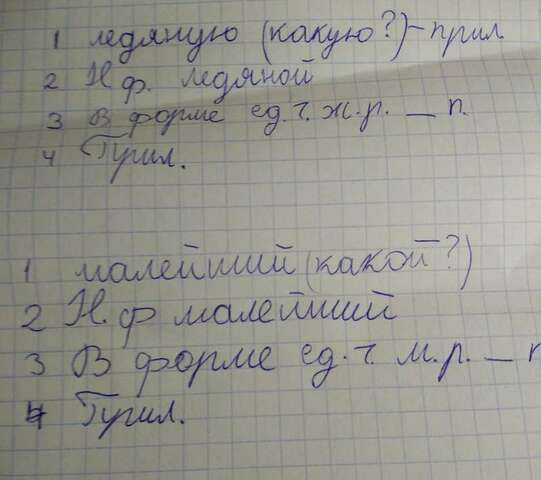 1 ледяную (какую?) - прил.
2 Н.ф. ледяной
3 В форме ед. ч. ж.р. _ п.
4 Прил.
1 малейший (какой?)
2 Н.ф малейший
3 В форме ед. ч. м.р. _ п
4 Прил.